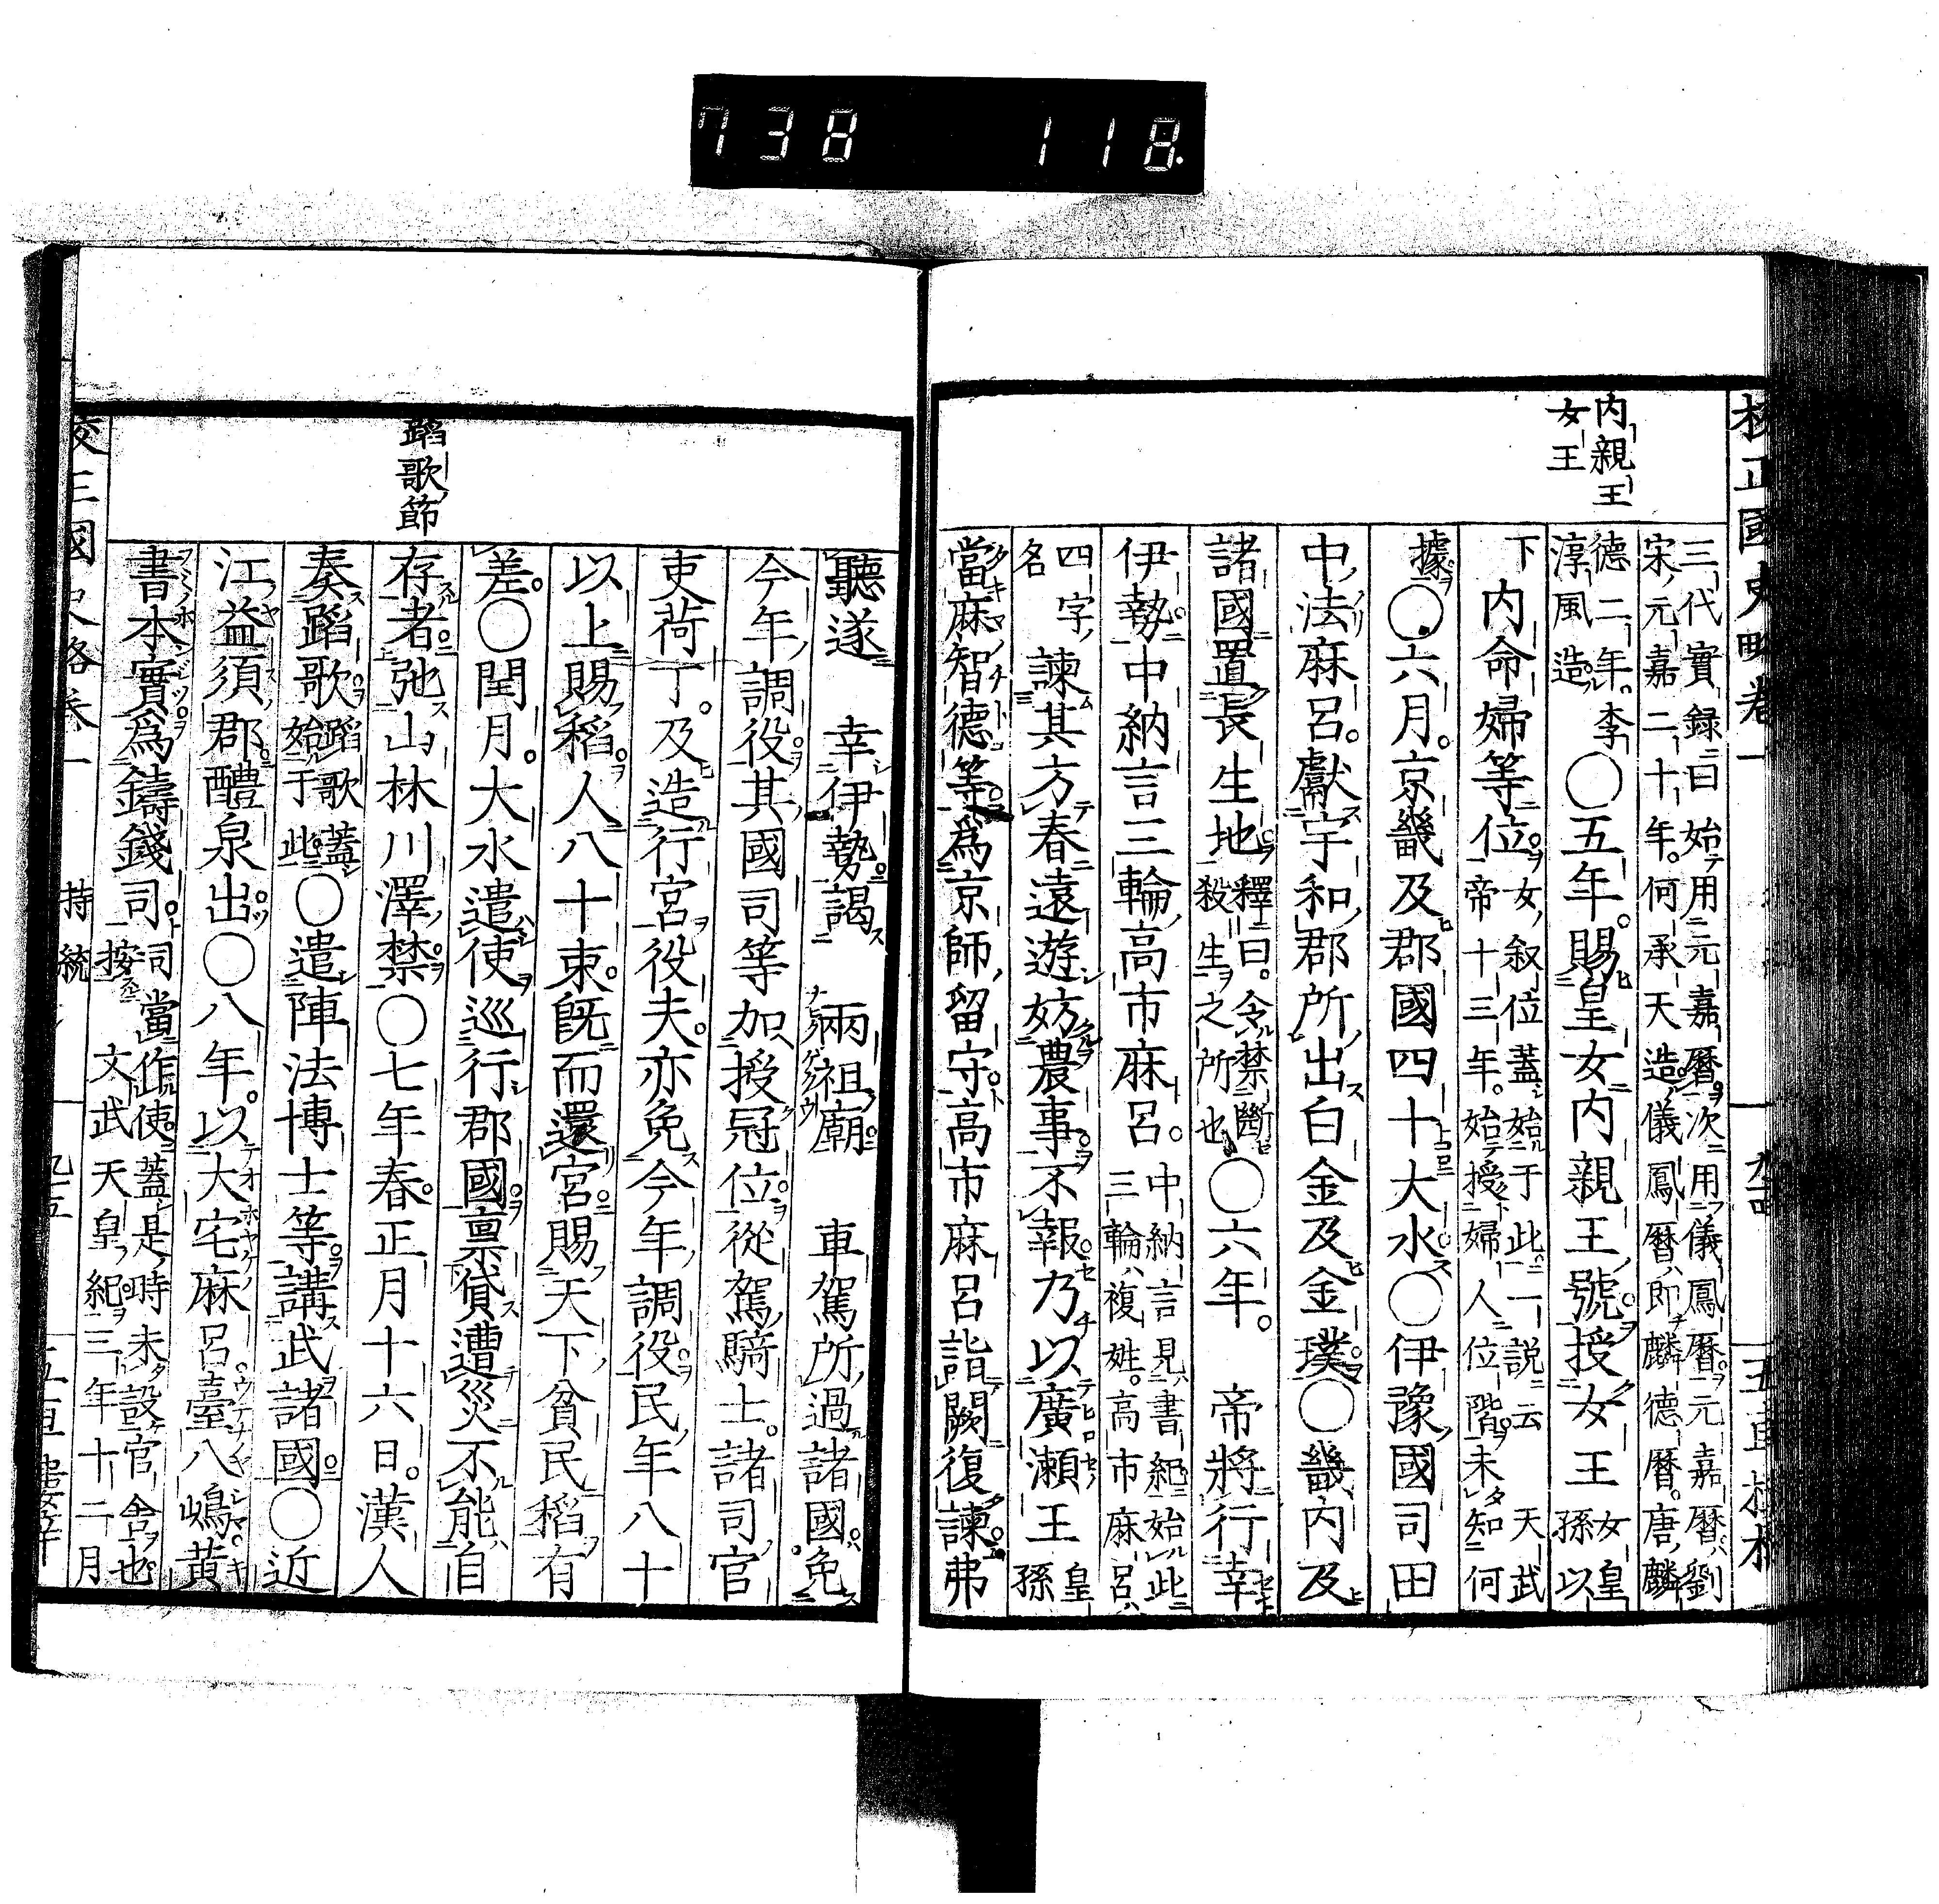 738 118.
校正國史略卷一
内親王
女王
三代實録曰始用元嘉曆次用儀鳳曆元嘉曆劉
宋元嘉二十年何承天造儀鳳曆即麟德曆唐麟
德二年李
淳風造
○五年賜皇女内親王號授女王
女皇
孫以
下
内命婦等位
女叙位蓋始于此一説云天武
帝十三年始授婦人位階未知何
據
○六月京畿及郡國四十大水○伊豫國司田
中法麻呂獻宇和郡所出白金及金璞○畿内及
諸國置長生地
釋曰令禁斷
殺生之所也
○六年帝將行幸
伊勢中納言三輪高市麻呂
中納言見書紀始此
三輪複姓高市麻呂
四字
名
諫其方春遠遊妨農事不報乃以廣瀬王
皇
孫
當麻智德等爲京師留守高市麻呂詣闕復諫弗
聽遂幸伊勢謁兩祖廟車駕所過諸國免
今年調役其國司等加授冠位從駕騎士諸司官
吏荷丁及造行宮役夫亦免今年調役民年八十
以上賜稻人八十束既而還宮賜天下貧民稻有
差○閏月大水遣使巡行郡國稟貸遭災不能自
存者弛山林川澤禁○七年春正月十六日漢人
蹈歌節
奏蹈歌
蹈歌蓋
始于此
○遣陣法博士等講武諸國○近
江益須郡醴泉出○八年以大宅麻呂臺八嶋黄
書本實爲鑄錢司
司當作使蓋是時未設官舍也
按文武天皇紀三年十二月
持統